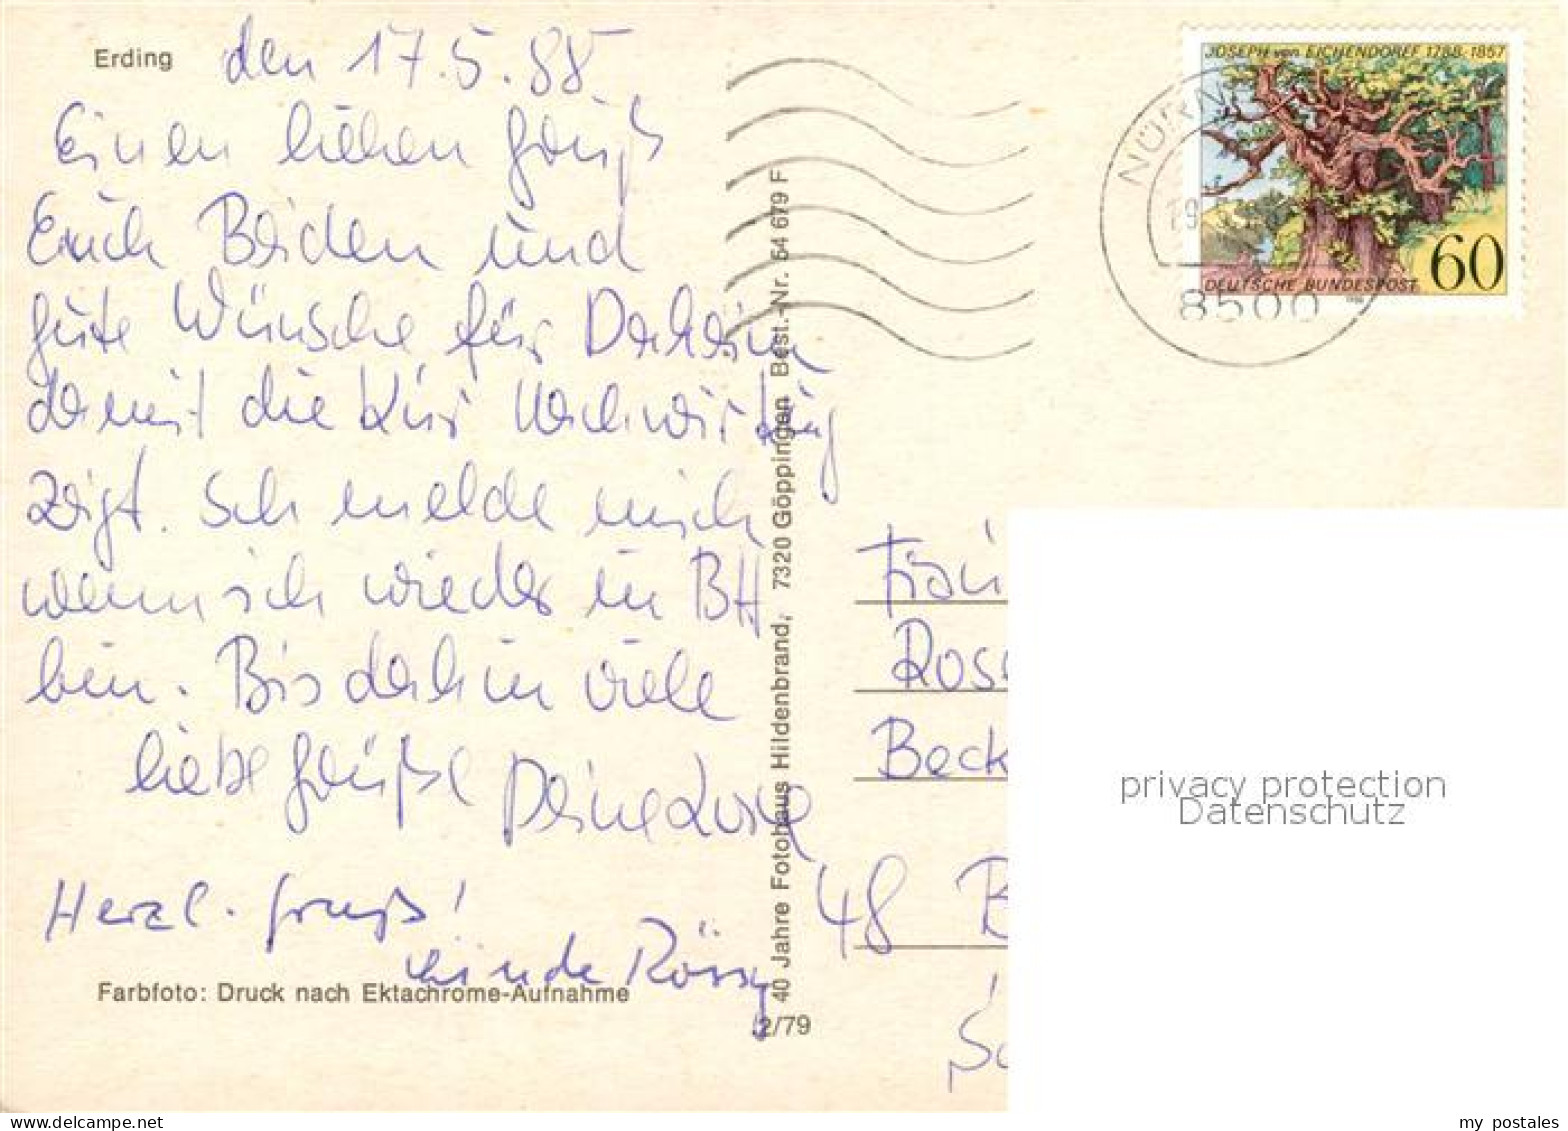 Erding
den 17.5.88
Einen lieben Gruß
Euch Beiden und
gute Wünsche für Daheim
damit die Kur Nachwirkung
zeigt. Ich melde mich
wenn ich wieder in BH
bin. Bis dahin viele
liebe Grüße Deine Lore
Herzl. Gruß!
Linde Rössy
Farbfoto: Druck nach Ektachrome-Aufnahme
40 Jahre Fotohaus Hildenbrand, 7320 Göppingen Best.-Nr. 54 679 F
2/79
JOSEPH von EICHENDORFF 1788-1857
60
DEUTSCHE BUNDESPOST
NÜRN
8500
Frau
Ros
Beck
48 B
privacy protection
Datenschutz
my postales